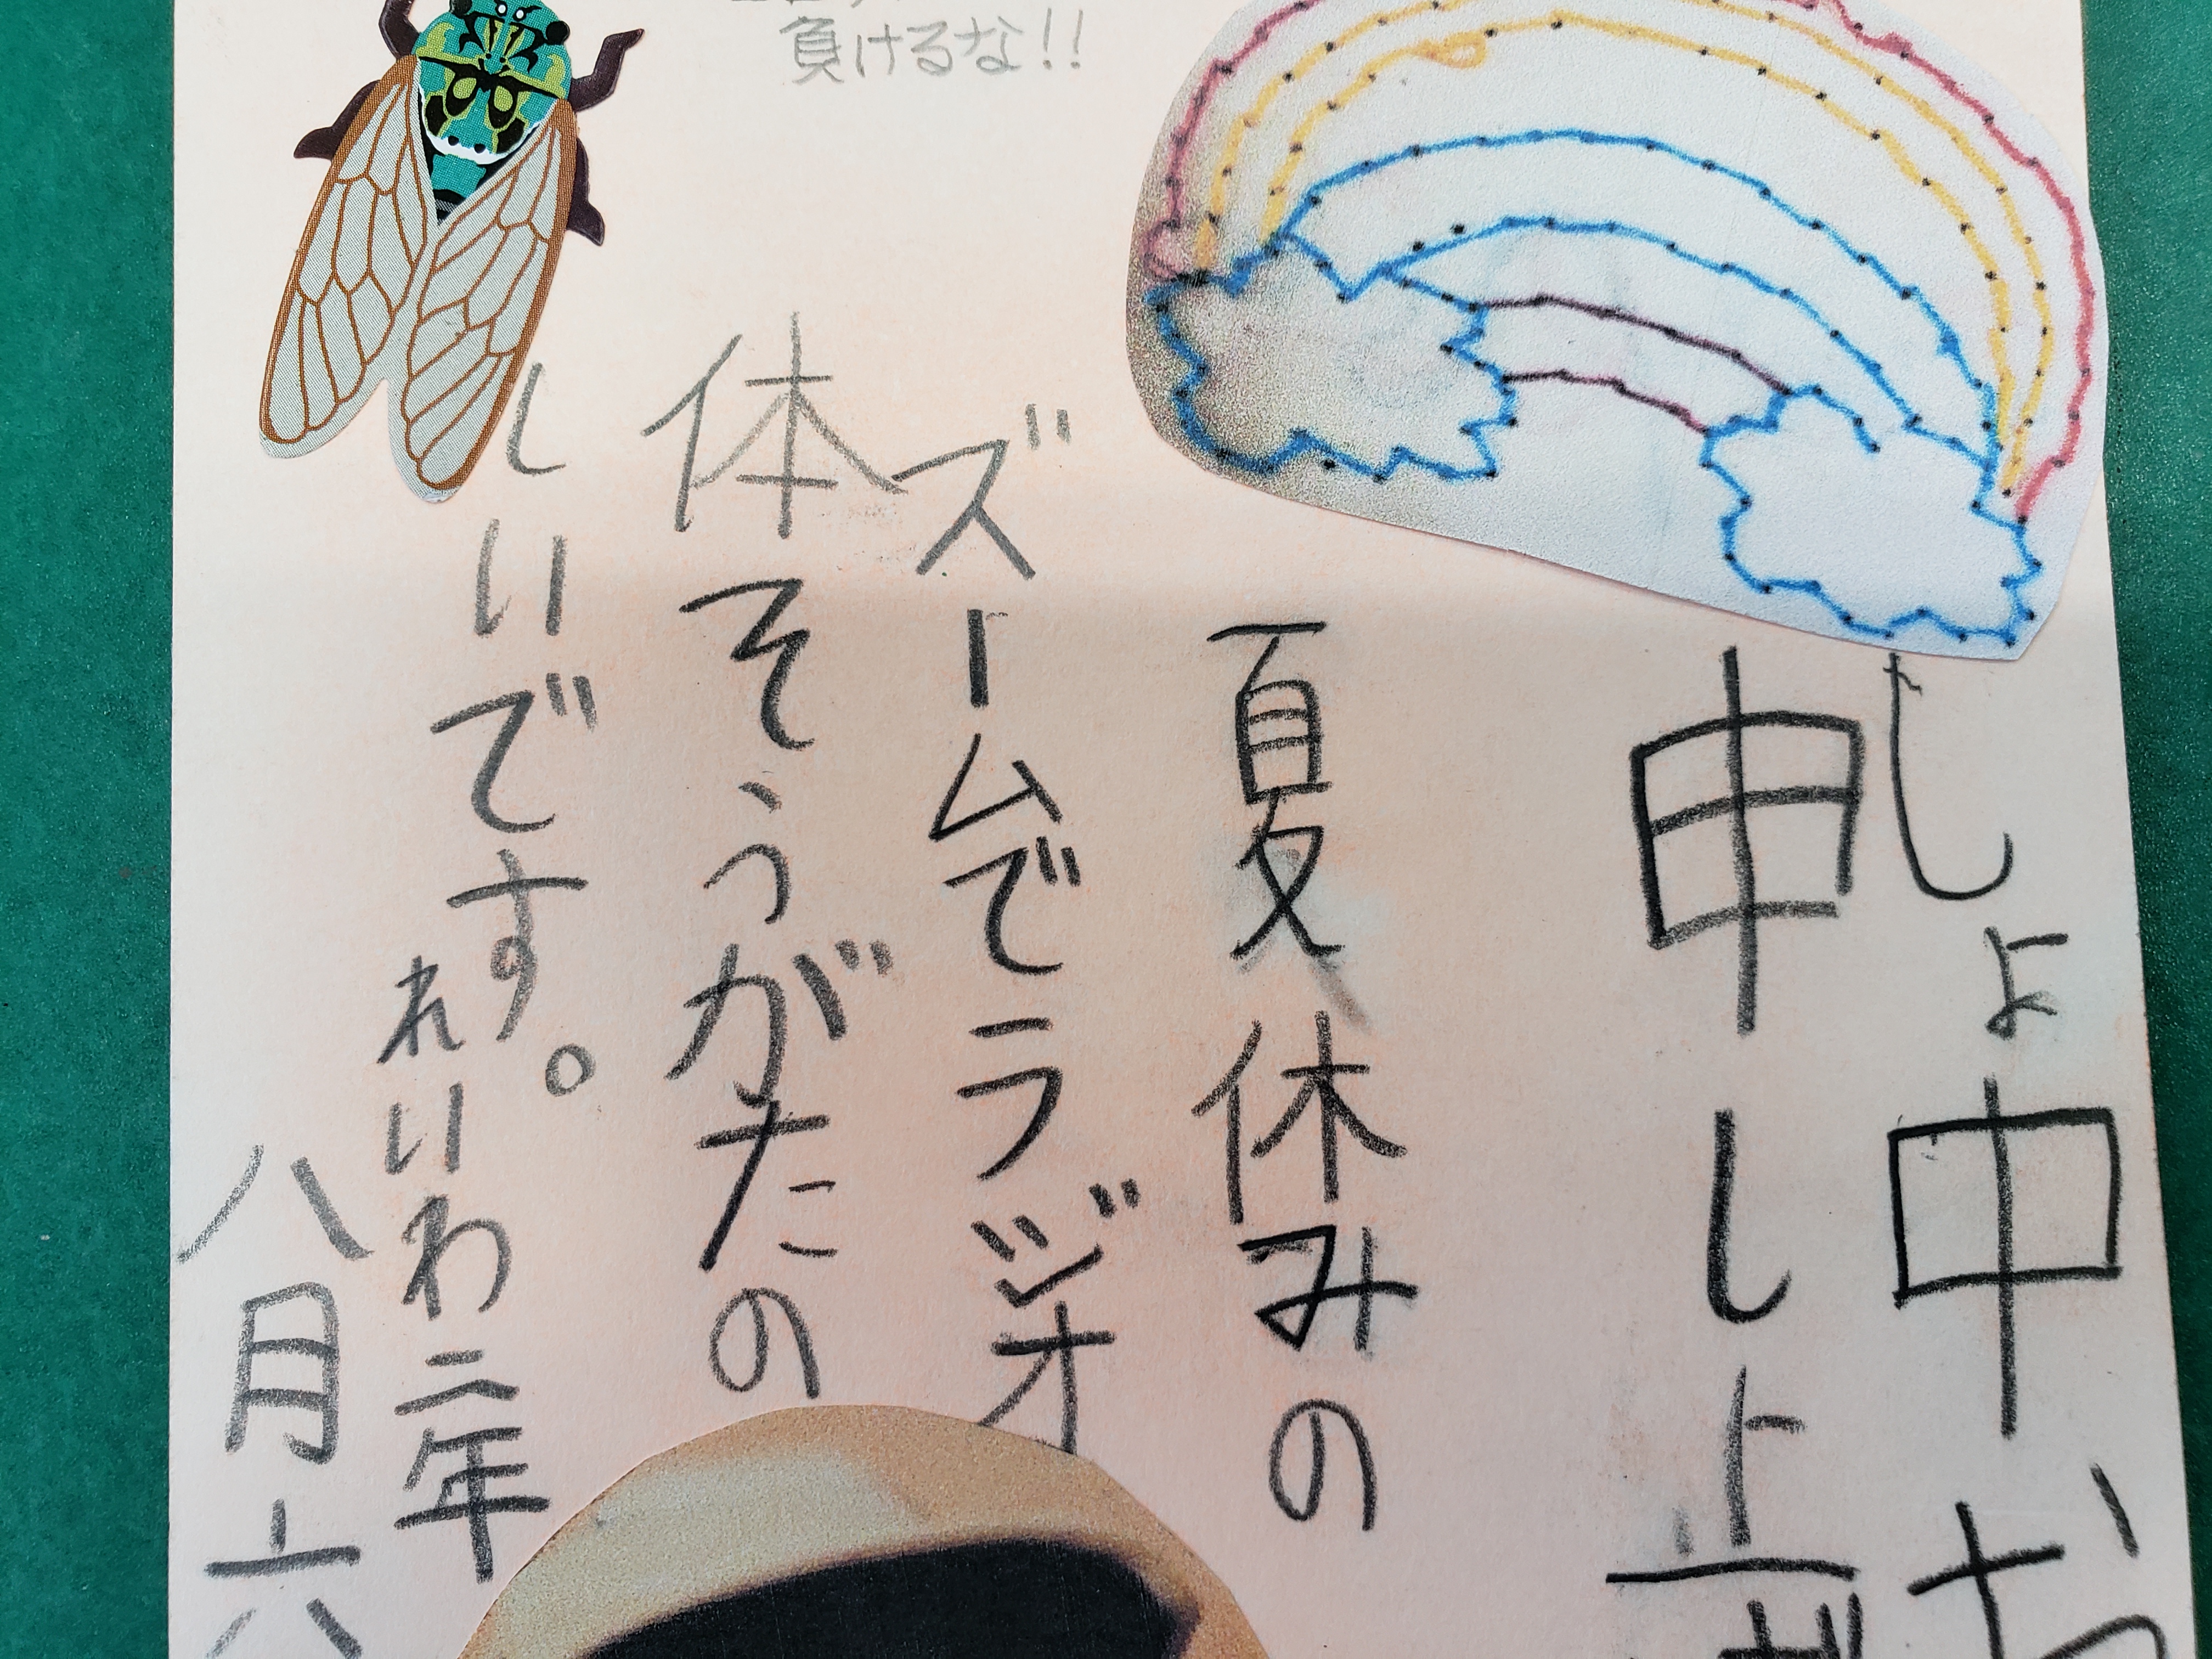 負けるな!!
しょ中お
申し上げ
夏休みの
ズームでラジオ
体そうがたの
しいです。
れいわ二年
八月六